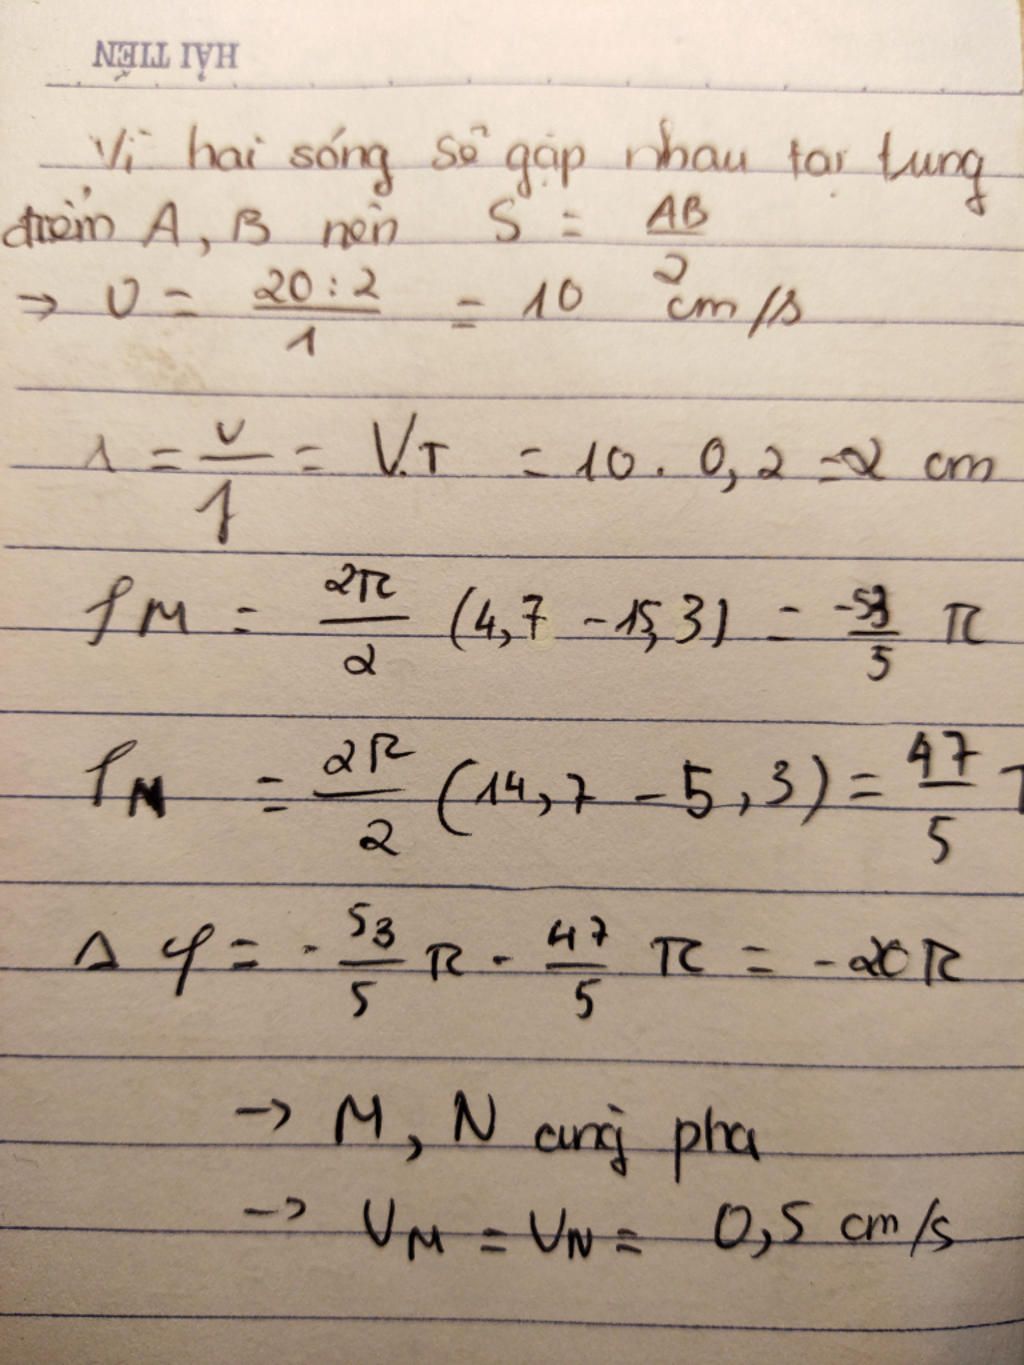 HẢI TIẾN
Vì hai sóng sẽ gặp nhau tại trung
điểm A, B nên S = AB/2
→ v = 20:2/1 = 10 cm/s
λ = v/f = V.T = 10 . 0,2 = 2 cm
φM = 2π/2 (4,7 - 15,3) = -53/5 π
φN = 2π/2 (14,7 - 5,3) = 47/5 π
Δφ = - 53/5 π - 47/5 π = -20π
→ M, N cùng pha
→ VM = VN = 0,5 cm/s